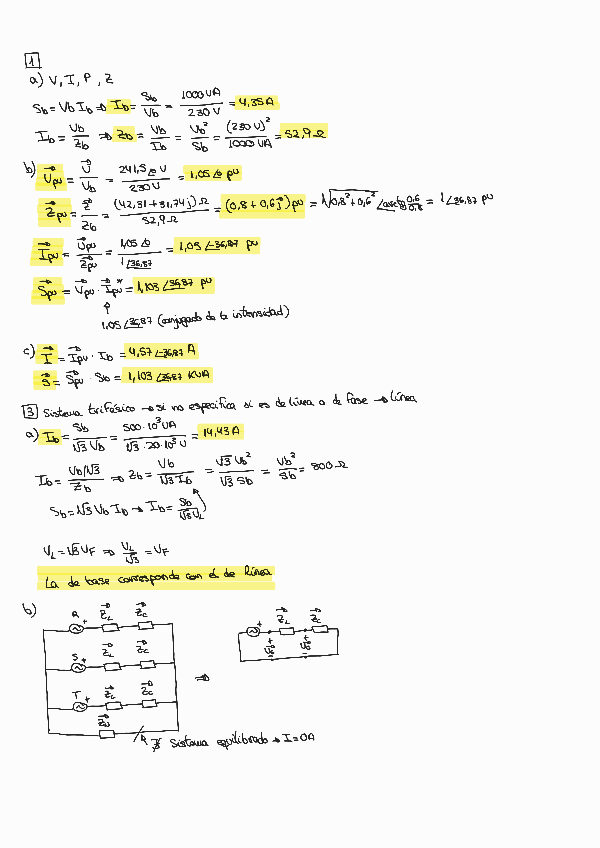 1
a) V, I, P, Z
Sb = Vb Ib ⇒ Ib = Sb/Vb = 1000 VA/230 V = 4,35 A
Ib = Vb/Zb ⇒ Zb = Vb/Ib = Vb²/Sb = (230 V)²/1000 VA = 52,9 Ω
b) Upu = U/Ub = 241,5∠0 V/230 V = 1,05∠0 pu
Zpu = Z/Zb = (42,31+31,74j) Ω/52,9 Ω = (0,8 + 0,6j) pu = √0,8²+0,6² ∠arctg 0,6/0,8 = 1∠36,87 pu
Ipu = Upu/Zpu = 1,05∠0/1∠36,87 = 1,05∠-36,87 pu
Spu = Vpu · Ipu* = 1,103∠36,87 pu
1,05∠36,87 (conjugado de la intensidad)
c) I = Ipu · Ib = 4,57∠-36,87 A
S = Spu · Sb = 1,103∠36,87 KVA
3 Sistema trifásico → si no especifica si es de línea o de fase → línea
a) Ib = Sb/√3 Vb = 500·10³ VA/√3·20·10³ V = 14,43 A
Ib = Vb/√3/Zb ⇒ Zb = Vb/√3 Ib = √3 Vb²/√3 Sb = Vb²/Sb = 800 Ω
Sb = √3 Vb Ib → Ib = Sb/√3 VL
VL = √3 VF ⇒ VL/√3 = VF
La de base corresponde con el de línea
b)
R + ZL ZC
S + ZL ZC
T + ZL ZC
ZN
⇒
+ ZL ZC
+ +
- -
Sistema equilibrado → I = 0A